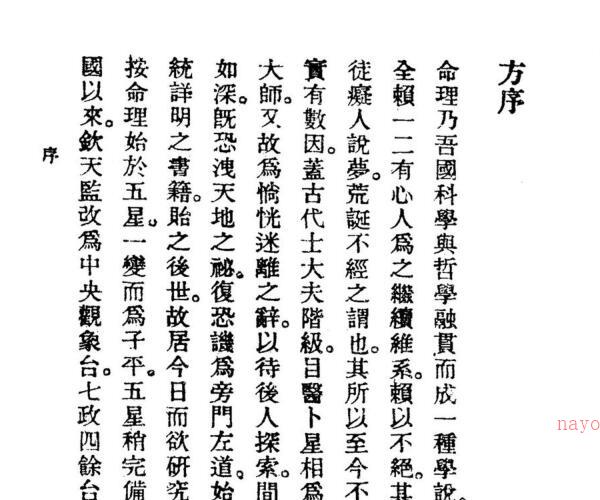 方序
命理乃吾國科學與哲學融貫而成一種學說。
全賴一二有心人爲之繼續維系。賴以不絕。其
徒癡人說夢。荒誕不經之謂也。其所以至今不
實有數因。蓋古代士大夫階級。目醫卜星相爲
大師。又故爲惝恍迷離之辭。以待後人探索。間
如深。旣恐洩天地之祕。復恐譏爲旁門左道。始
統詳明之書籍。貽之後世。故居今日而欲硏究
按命理始於五星。一變而爲子平。五星稍完備
國以來。欽天監改爲中央觀象台。七政四餘台
序
nayo